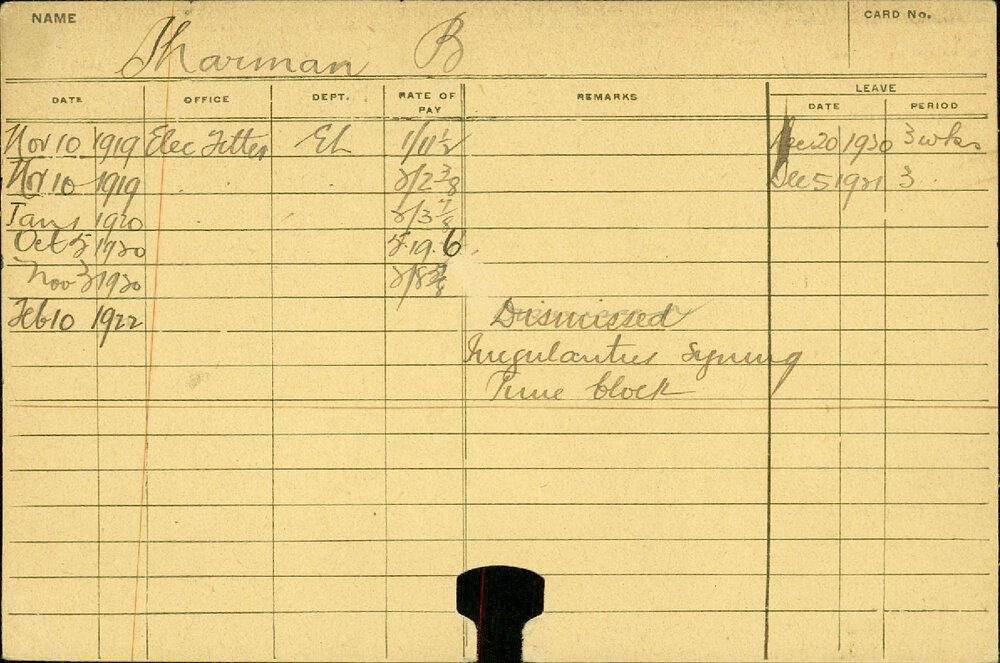 NAME Sharman B CARD No.
DATE OFFICE DEPT. RATE OF PAY REMARKS LEAVE DATE PERIOD
Nov 10 1919 Elec Fitter El 1/11 1/2 Dec 20 1920 3 wks
Nov 10 1919 2/2 3/8 Dec 5 1921 3
Jan 1 1920 2/3 7/8
Oct 5 1920 5.19.6
Nov 3 1920
Feb 10 1922 Dismissed
Irregularities Signing
Time Clock